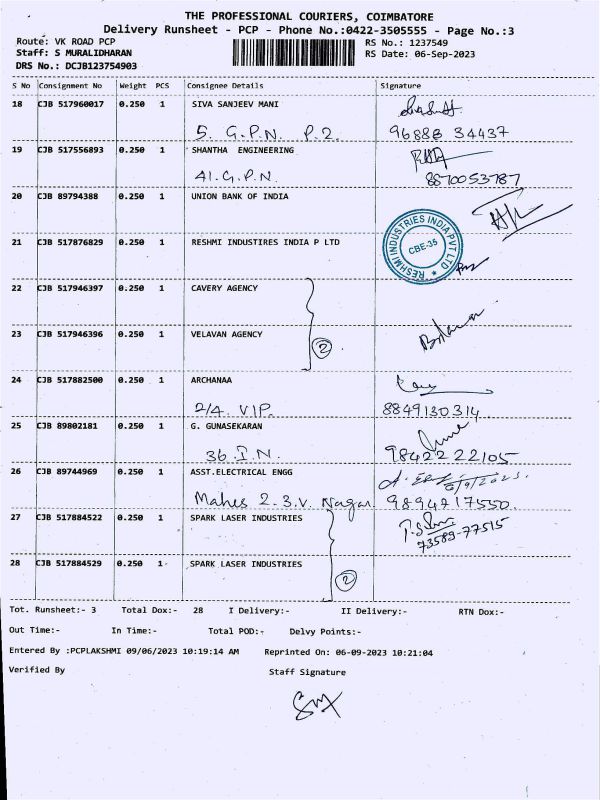 THE PROFESSIONAL COURIERS, COIMBATORE
Delivery Runsheet - PCP - Phone No.:0422-3505555 - Page No.:3
Route: VK ROAD PCP RS No.: 1237549
Staff: S MURALIDHARAN RS Date: 06-Sep-2023
DRS No.: DCJB123754903
S No Consignment No Weight PCS Consignee Details Signature
18 CJB 517960017 0.250 1 SIVA SANJEEV MANI
5. G.P.N. P.2. 96888 34437
19 CJB 517556893 0.250 1 SHANTHA ENGINEERING
41.G.P.N. 8870053787
20 CJB 89794388 0.250 1 UNION BANK OF INDIA
21 CJB 517876829 0.250 1 RESHMI INDUSTIRES INDIA P LTD
RESHMI INDUSTRIES INDIA PVT LTD
CBE-35
22 CJB 517946397 0.250 1 CAVERY AGENCY
23 CJB 517946396 0.250 1 VELAVAN AGENCY
2
24 CJB 517882500 0.250 1 ARCHANAA
2/4. VIP. 8849130314
25 CJB 89802181 0.250 1 G. GUNASEKARAN
36.I.N. 98422 22105
26 CJB 89744969 0.250 1 ASST.ELECTRICAL ENGG
6/9/2023.
Mahes 2-3.V. Nagar 9894717550.
27 CJB 517884522 0.250 1 SPARK LASER INDUSTRIES
73589-77515
28 CJB 517884529 0.250 1 SPARK LASER INDUSTRIES
2
Tot. Runsheet:- 3 Total Dox:- 28 I Delivery:- II Delivery:- RTN Dox:-
Out Time:- In Time:- Total POD:- Delvy Points:-
Entered By :PCPLAKSHMI 09/06/2023 10:19:14 AM Reprinted On: 06-09-2023 10:21:04
Verified By Staff Signature